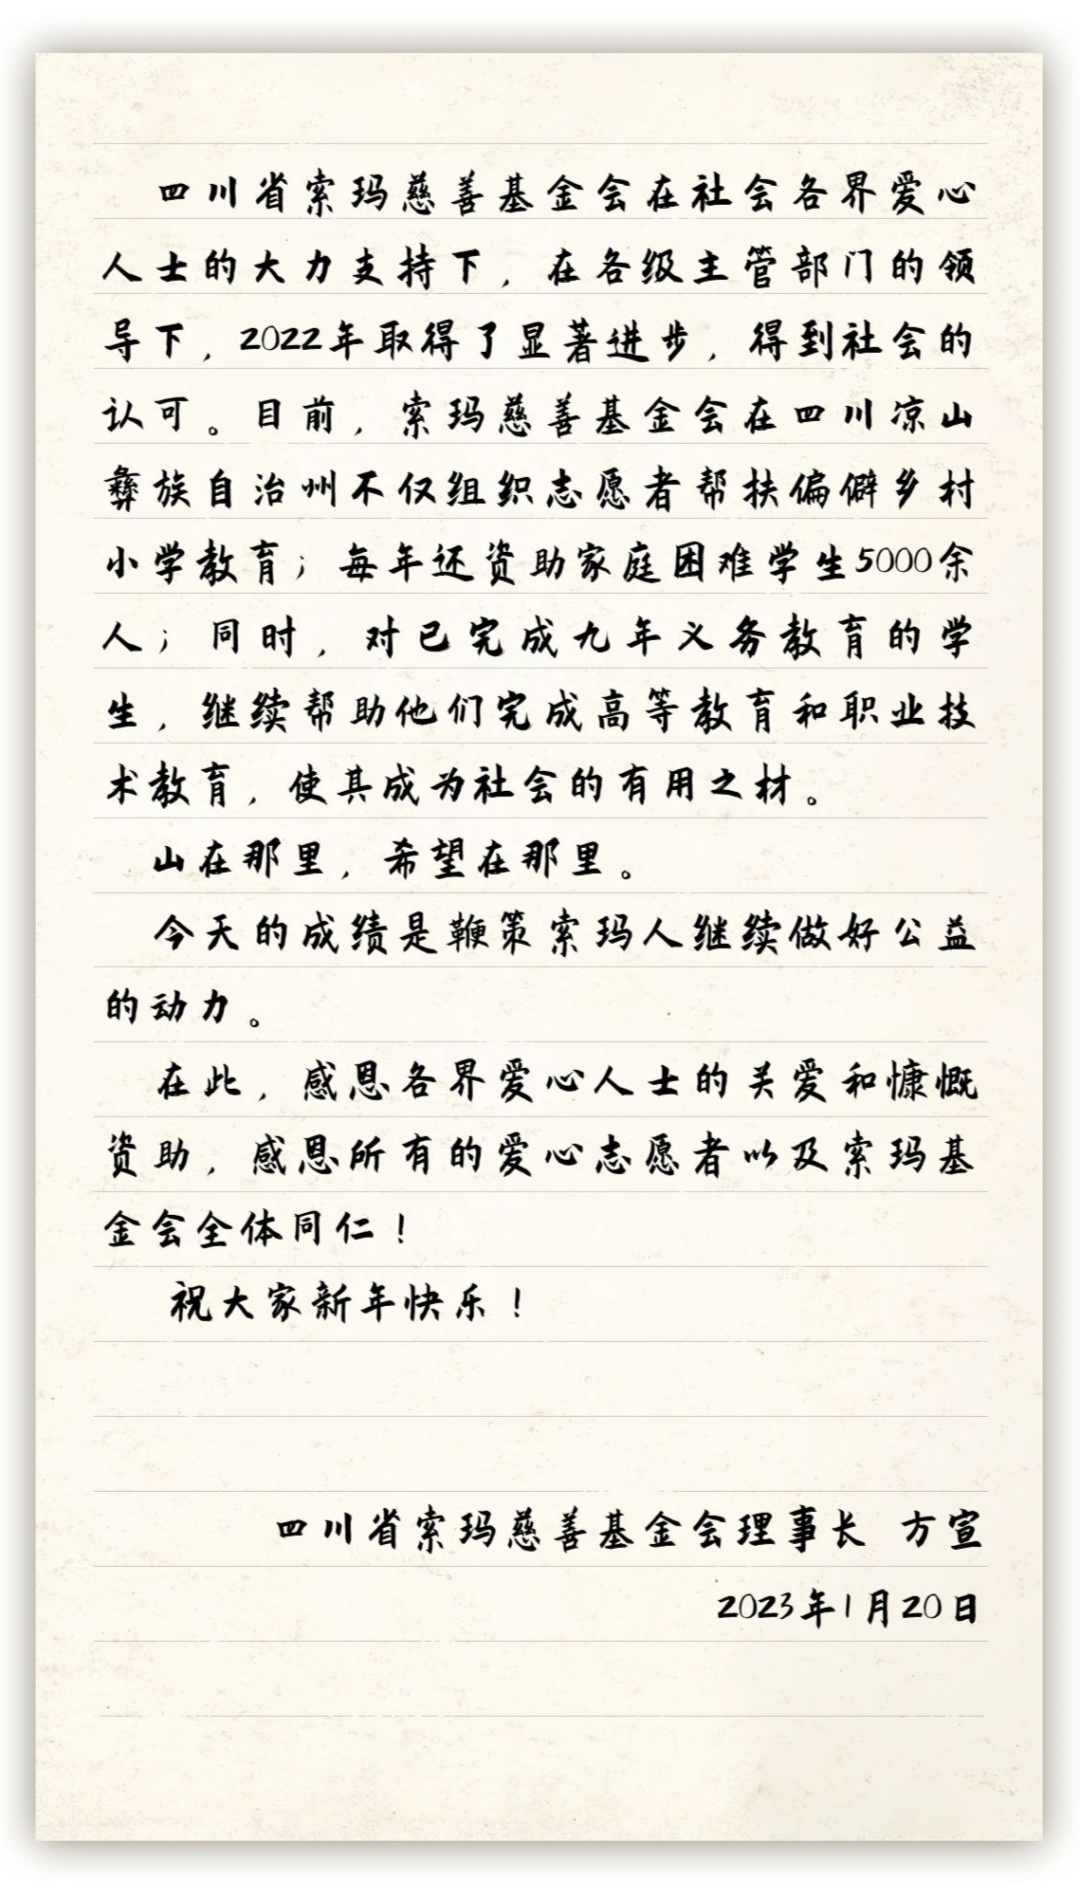 四川省索玛慈善基金会在社会各界爱心
人士的大力支持下，在各级主管部门的领
导下，2022年取得了显著进步，得到社会的
认可。目前，索玛慈善基金会在四川凉山
彝族自治州不仅组织志愿者帮扶偏僻乡村
小学教育；每年还资助家庭困难学生5000余
人；同时，对已完成九年义务教育的学
生，继续帮助他们完成高等教育和职业技
术教育，使其成为社会的有用之材。
山在那里，希望在那里。
今天的成绩是鞭策索玛人继续做好公益
的动力。
在此，感恩各界爱心人士的关爱和慷慨
资助，感恩所有的爱心志愿者以及索玛基
金会全体同仁！
祝大家新年快乐！
四川省索玛慈善基金会理事长 方宣
2023年1月20日